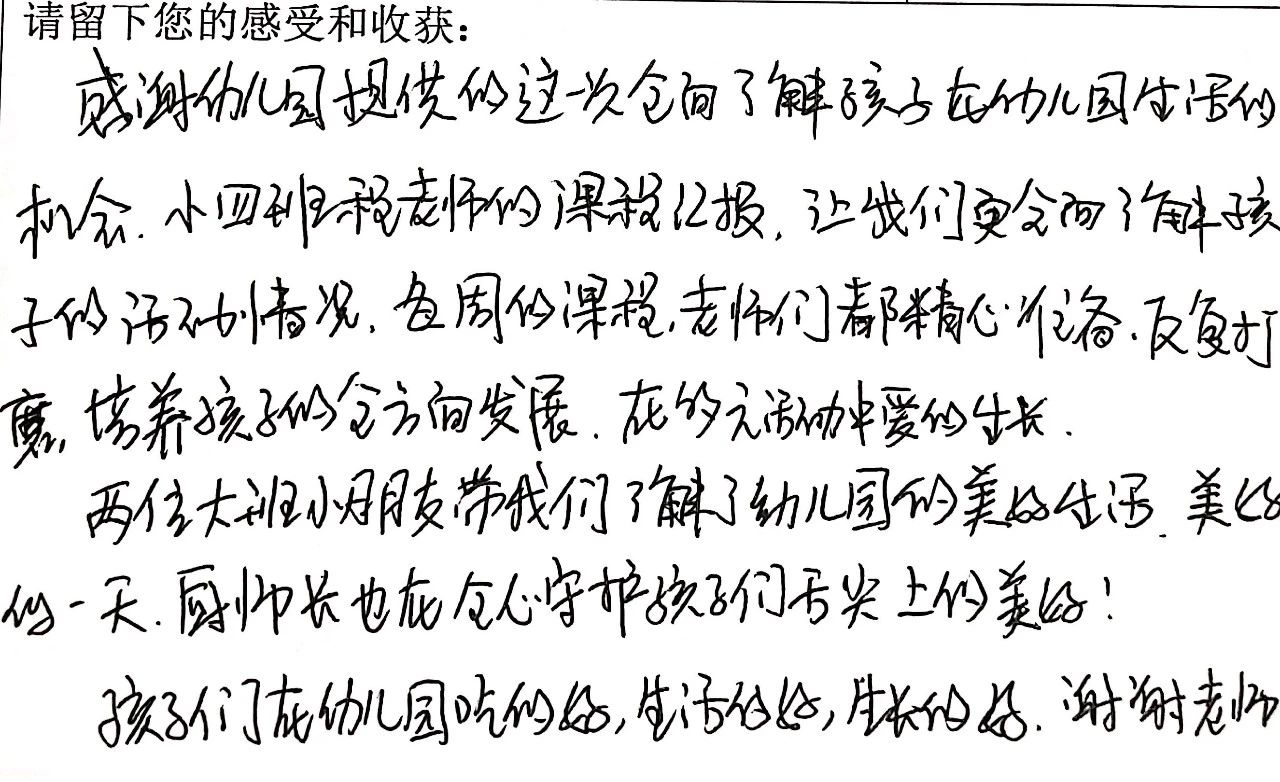 请留下您的感受和收获：
感谢幼儿园提供的这一次全面了解孩子在幼儿园生活的
机会.小四班程老师的课程汇报,让我们更全面了解孩
子的活动情况,每周的课程,老师们都精心准备.反复打
磨,培养孩子的全方面发展.在多元活动中爱的生长.
两位大班小朋友带我们了解了幼儿园的美好生活.美好
的一天.厨师长也在全心守护孩子们舌尖上的美好！
孩子们在幼儿园吃的好,生活的好,生长的好.谢谢老师